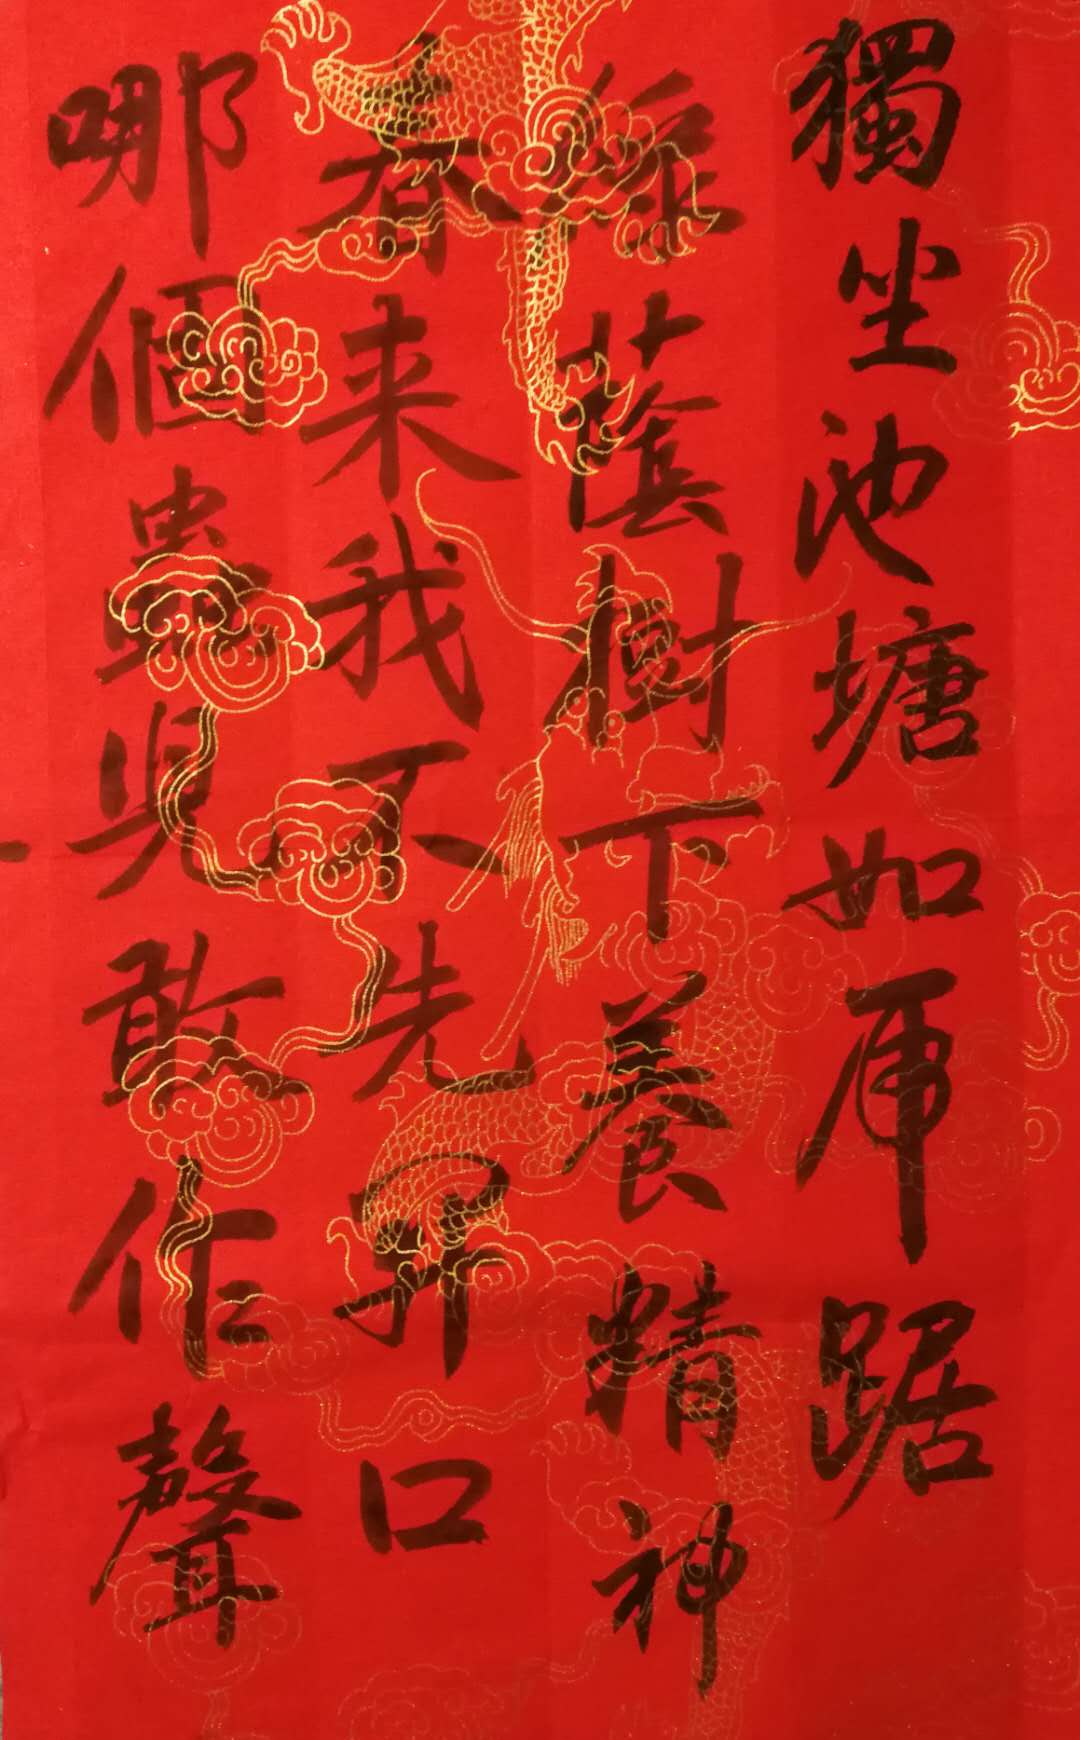 獨坐池塘如虎踞
綠蔭樹下養精神
春来我不先开口
哪個蟲兒敢作聲